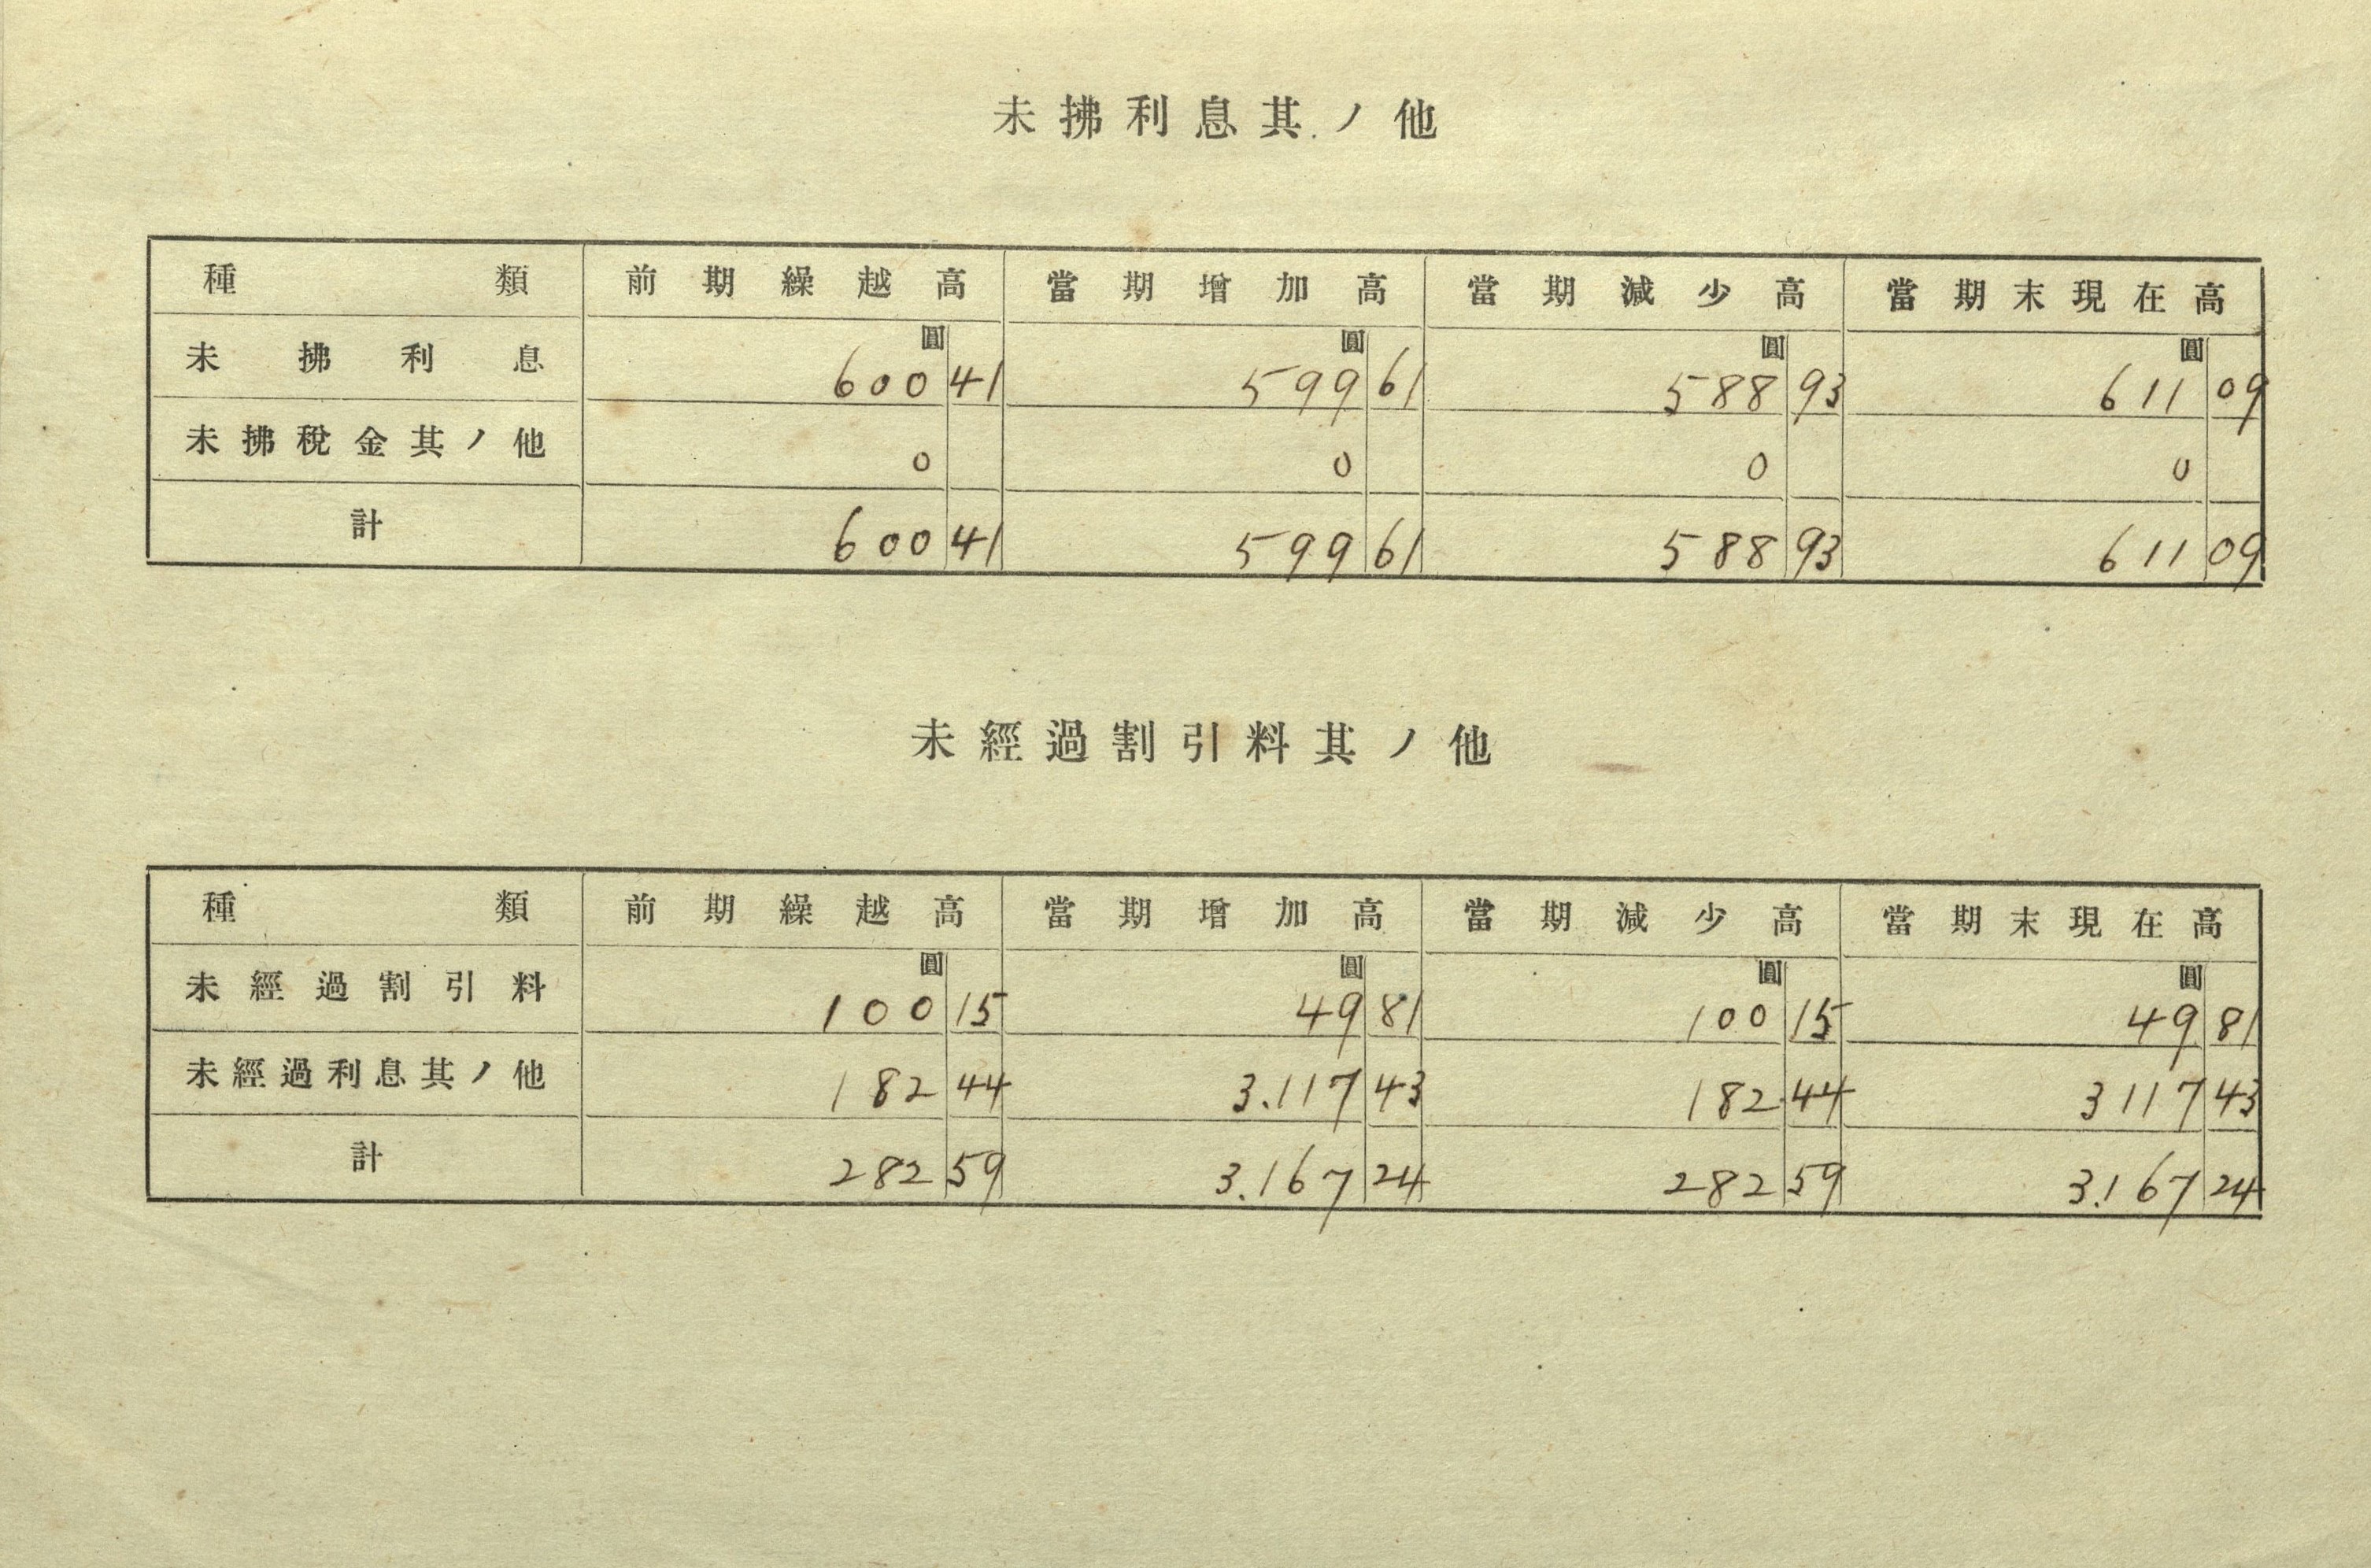 未拂利息其ノ他
種類 前期繰越高 當期增加高 當期減少高 當期末現在高
圓 圓 圓 圓
未拂利息 600 41 599 61 588 93 611 09
未拂稅金其ノ他 0 0 0 0
計 600 41 599 61 588 93 611 09
未經過割引料其ノ他
種類 前期繰越高 當期增加高 當期減少高 當期末現在高
圓 圓 圓 圓
未經過割引料 100 15 49 81 100 15 49 81
未經過利息其ノ他 182 44 3.117 43 182.44 3117 43
計 282 59 3.167 24 282 59 3.167 24